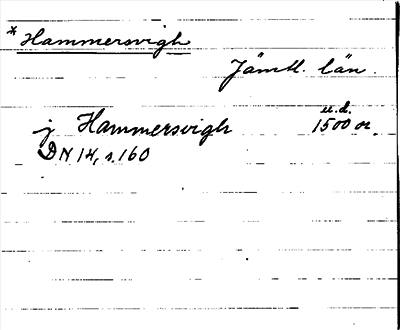 * Hammersvigh
Jämtl. län.
u.d.
j Hammersvigh 1500 or.
DN 14, s. 160